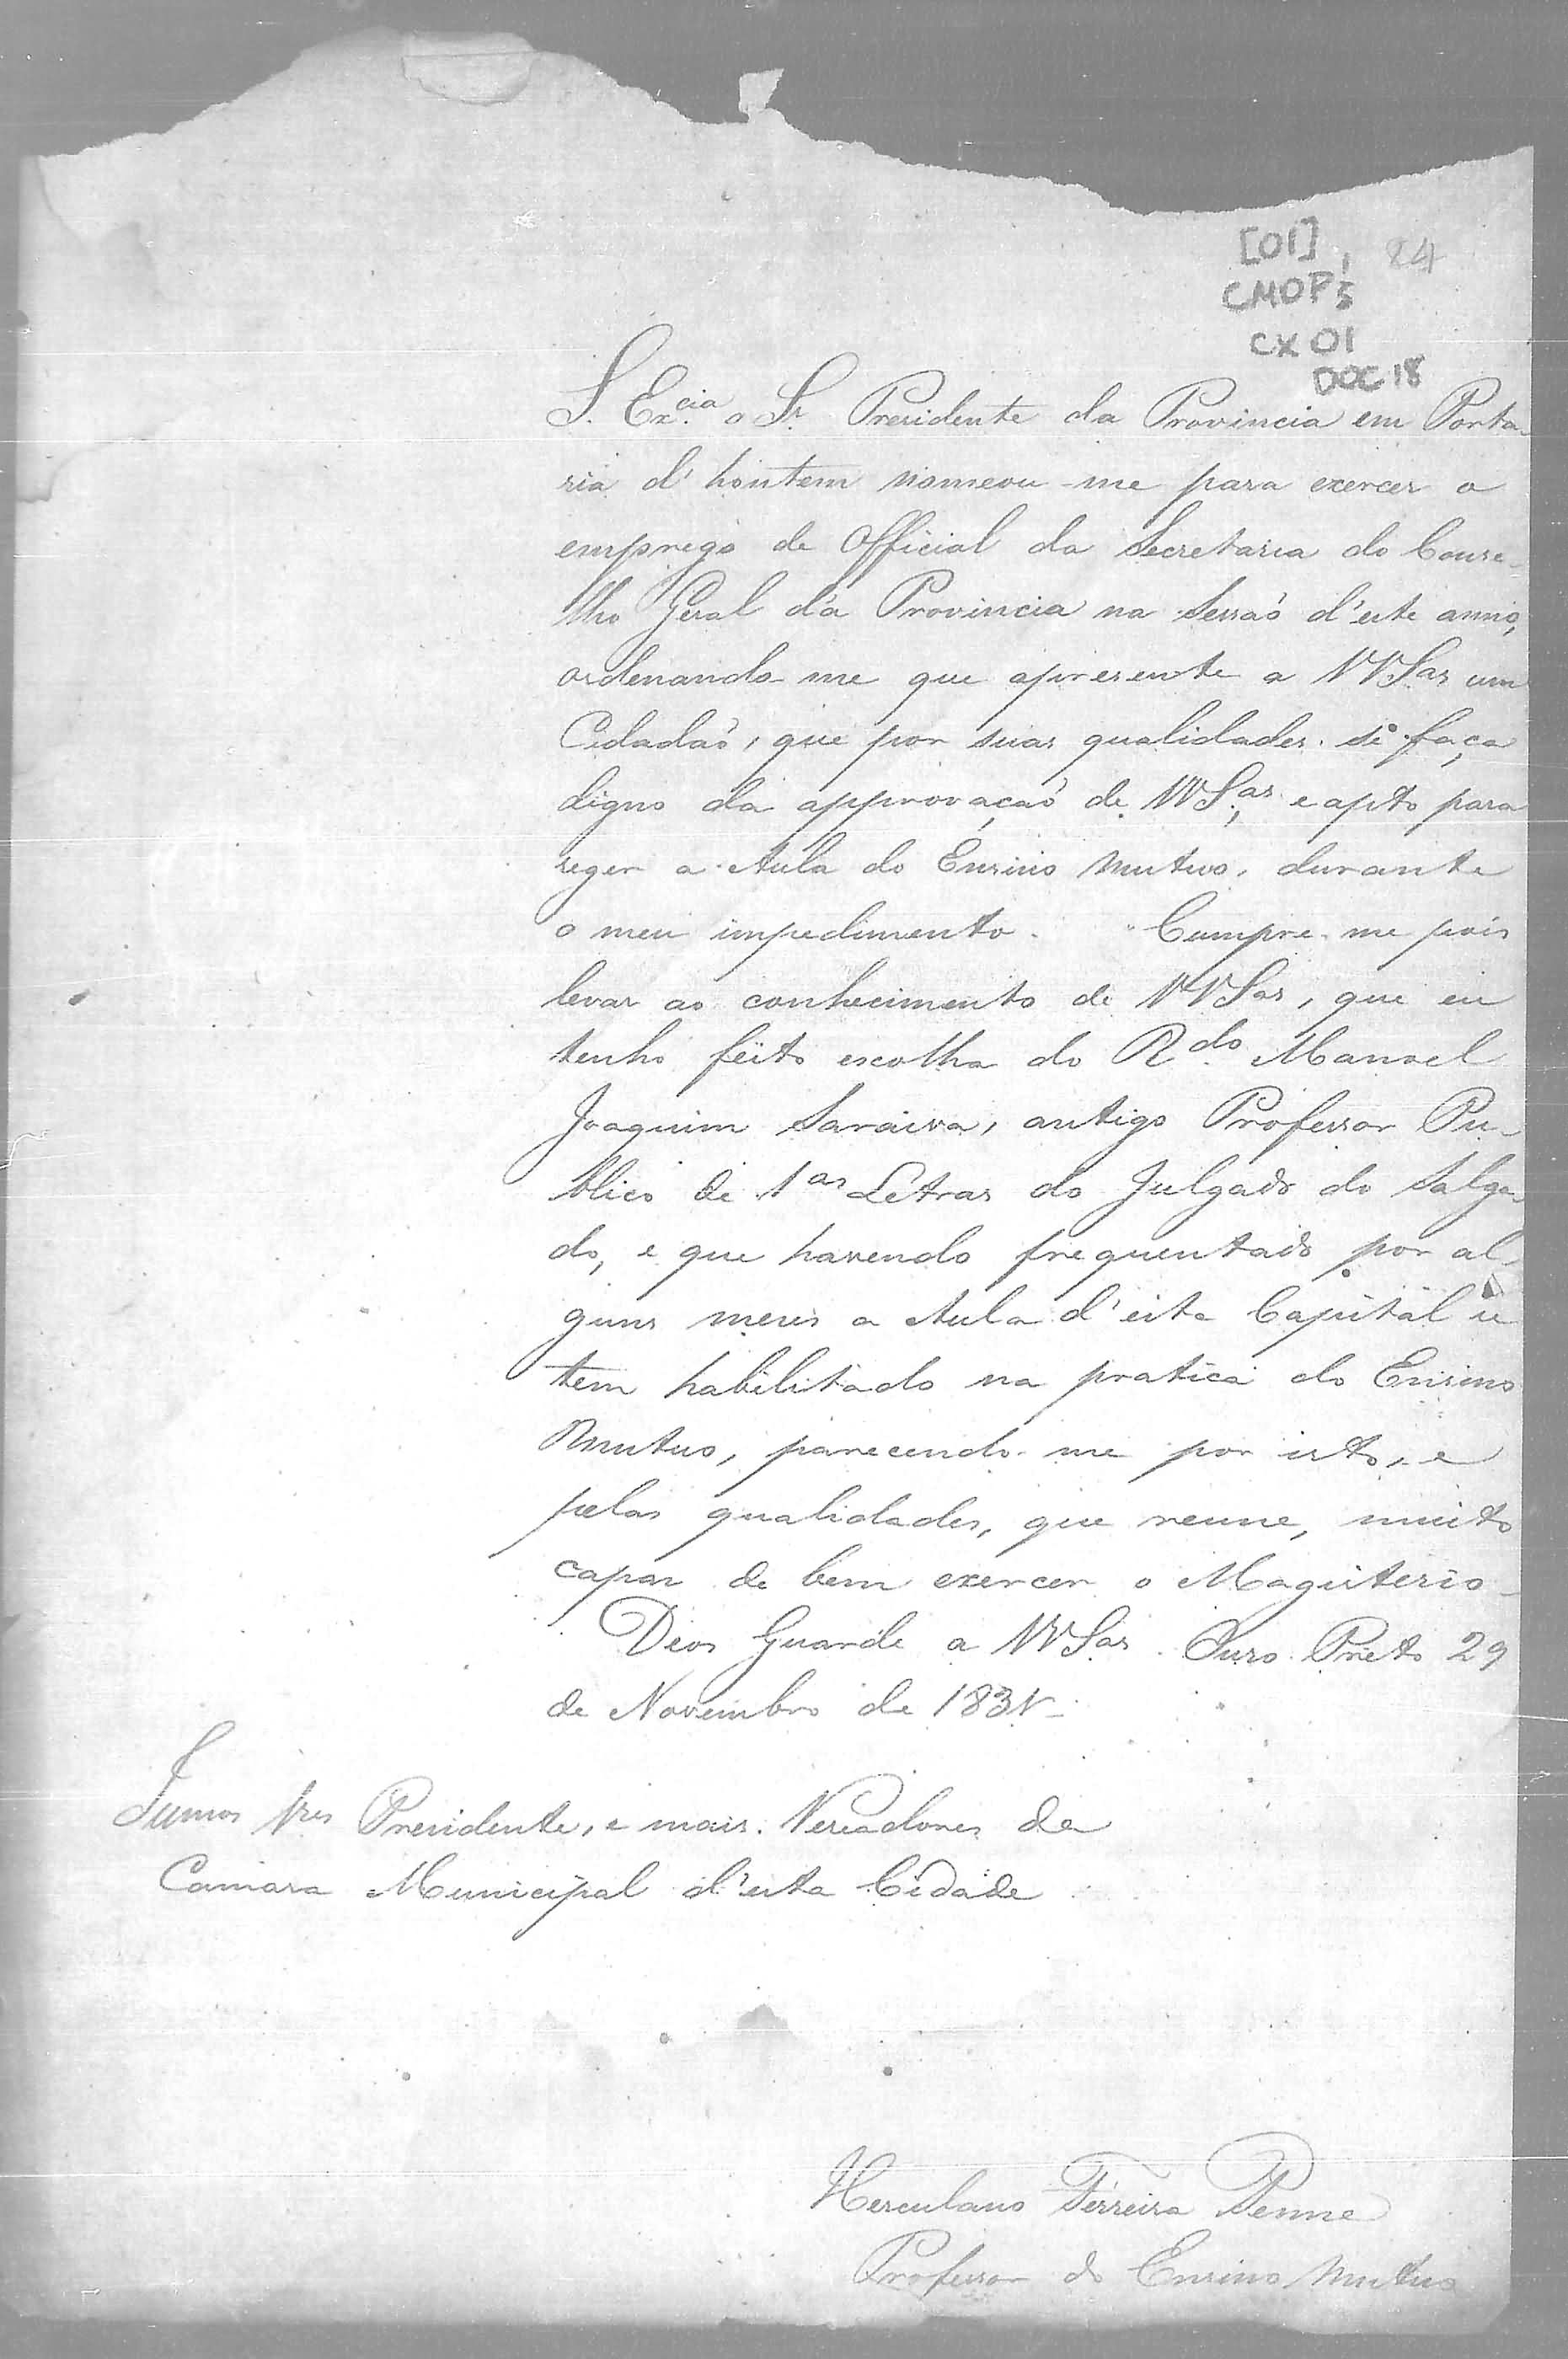 [01], 84
CMOP 5
CX 01
DOC 18
S. Ex.cia o Sr. Presidente da Provincia em Porta-
ria d'hontem nomeou-me para exercer o
emprego de Official da Secretaria do Conse-
lho Geral da Provincia na Sessaõ d'este anno,
ordenando-me que apresente a VVSas um
Cidadaõ, que por suas qualidades se faça
digno da approvaçaõ de VVSas, e apto para
reger a Aula do Ensino Mutuo, durante
o meu impedimento. Cumpre-me pois
levar ao conhecimento de VVSas, que eu
tenho feito escolha do Rdo. Manoel
Joaquim Saraiva, antigo Professor Pu-
blico de 1as Letras do Julgado do Salga-
do, e que havendo frequentado por al-
guns meses a Aula d'esta Capital se
tem habilitado na pratica do Ensino
Mutuo, parecendo-me por isto, e
pelas qualidades, que reune, muito
capaz de bem exercer o Magisterio.
Deos Guarde a VVSas. Ouro Preto 29
de Novembro de 1831
Presidente, e mais Vereadores da
Camara Municipal d'esta Cidade
Herculano Ferreira Penna
Professor do Ensino Mutuo